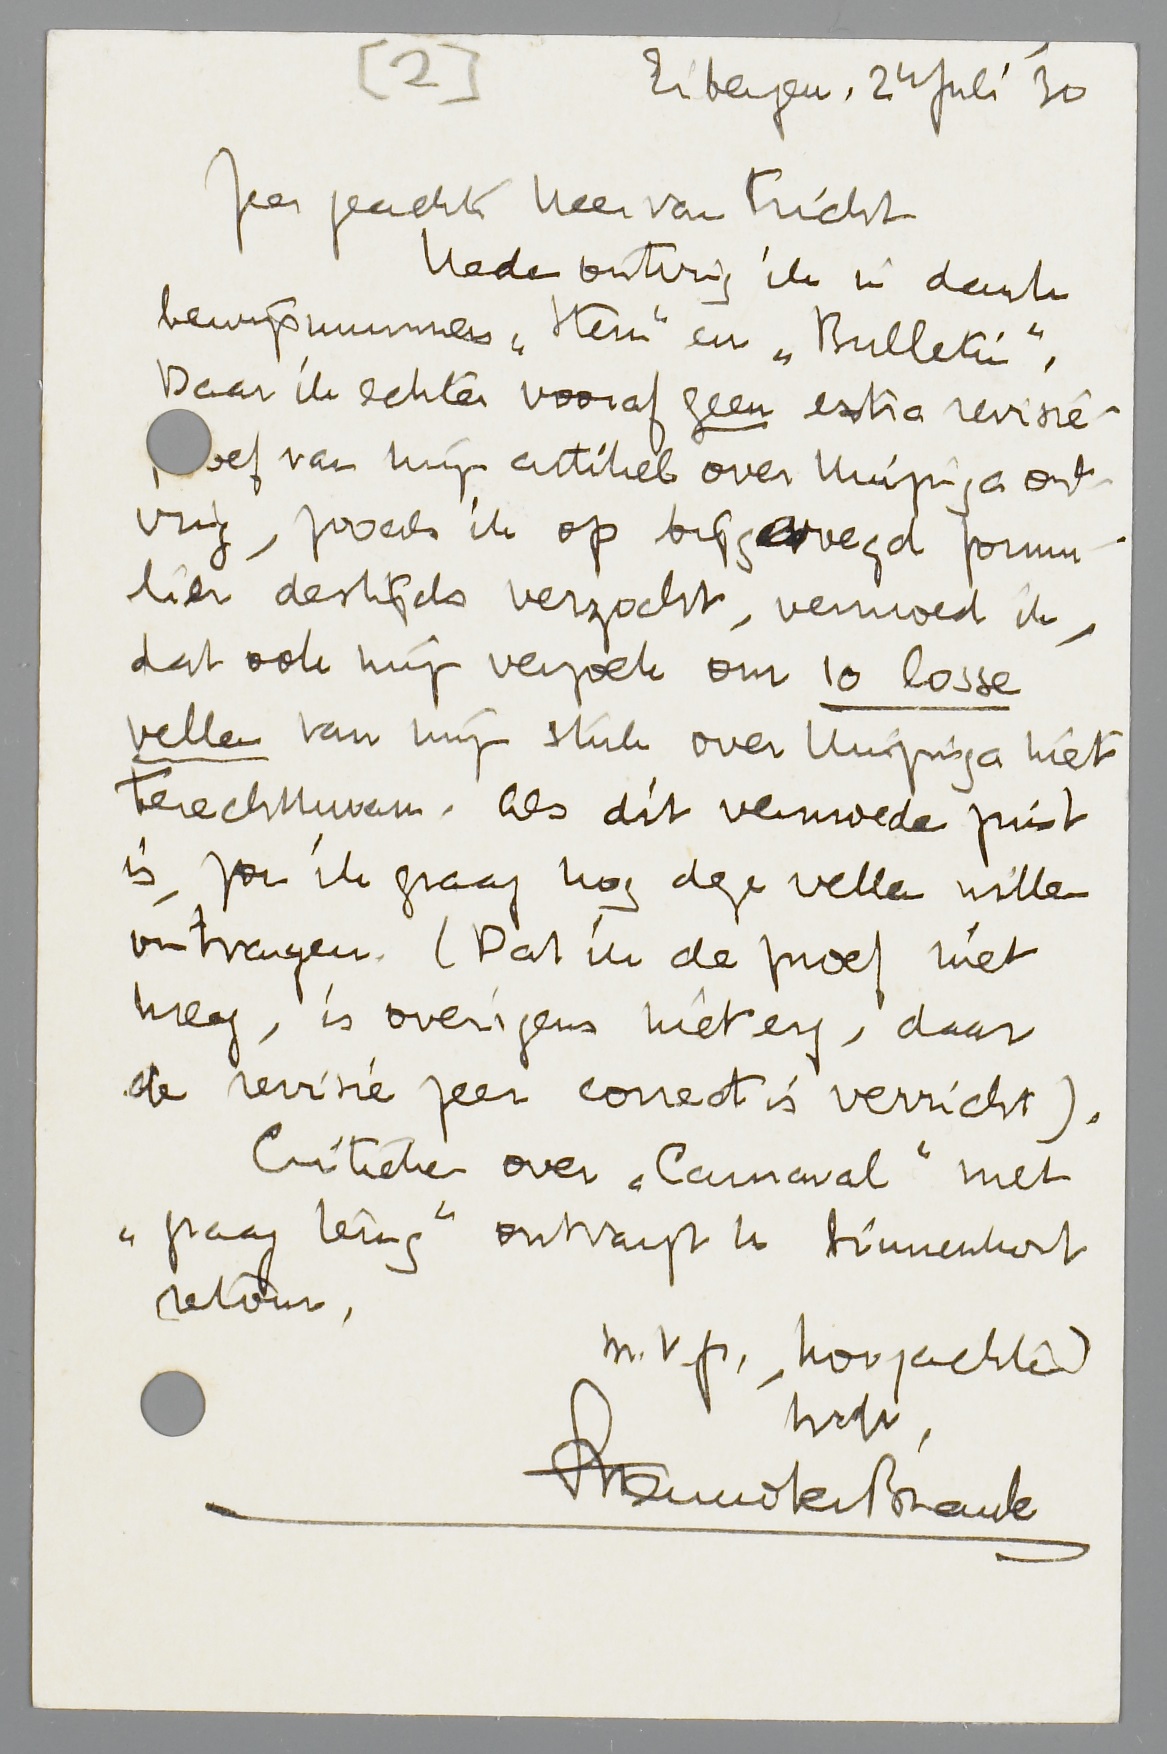 [2]
Eibergen, 24 Juli '30
Zeer geachte Heer van Tricht
Heden ontving ik in dank
bewijsnummers „Stem" en „Bulletin".
Daar ik echter vooraf geen extra revisie-
oef van mijn artikel over Huizinga ont-
ving, zooals ik op bijgevoegd formu-
lier destijds verzocht, vermoed ik,
dat ook mijn verzoek om 10 losse
vellen van mijn stuk over Huizinga niet
terechtkwam. Als dit vermoeden juist
is, zou ik graag nog deze vellen willen
ontvangen. (Dat ik de proef niet
kreeg, is overigens niet erg, daar
de revisie zeer correct is verricht).
Critieken over „Carnaval" met
„graag terug" ontvangt u binnenkort
retour.
m.v.gr., hoogachtend
Menno ter Braak